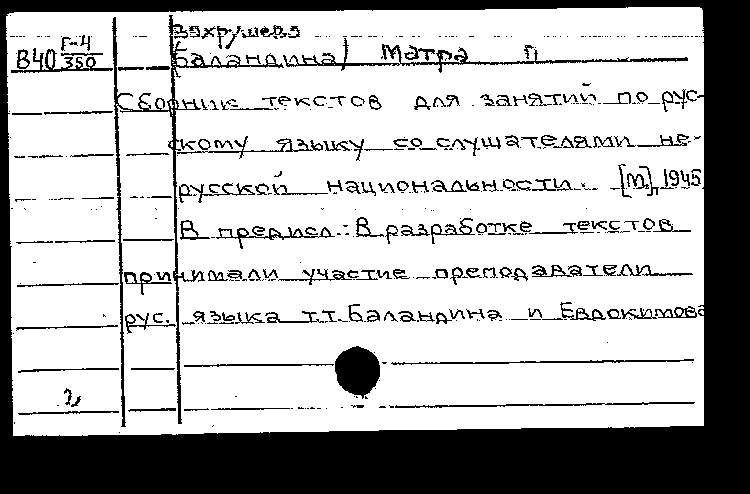 Вахрушева
В40 Г-4/350 Баландина) Матра П
Сборник текстов для занятий по рус-
скому языку со слушателями не-
русской национальности. [М], 1945
В предисл.: В разработке текстов
принимали участие преподаватели
рус. языка т.т. Баландина и Евдокимова